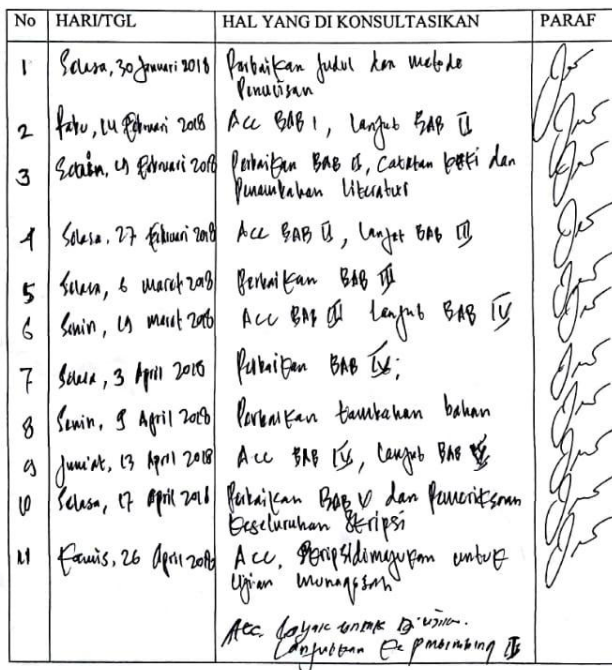 No HARI/TGL HAL YANG DI KONSULTASIKAN PARAF
1 Selasa, 30 Januari 2018 Perbaikan Judul dan metode
Penulisan
2 Rabu, 14 Februari 2018 Acc BAB I, Lanjut BAB II
3 Senin, 19 Februari 2018 Perbaikan BAB II, Catatan kaki dan
Penambahan Literatur
4 Selasa, 27 Februari 2018 Acc BAB II, Lanjut BAB III
5 Selasa, 6 maret 2018 Perbaikan BAB III
6 Senin, 19 maret 2018 Acc BAB III Lanjut BAB IV
7 Selasa, 3 April 2018 Perbaikan BAB IV;
8 Senin, 9 April 2018 Perbaikan tambahan bahan
9 Jum'at, 13 April 2018 Acc BAB IV, Lanjut BAB V
10 Selasa, 17 April 2018 Perbaikan BAB V dan Pemeriksaan
keseluruhan Skripsi
11 Kamis, 26 April 2018 Acc, Skripsi dimajukan untuk
Ujian munaqasah
Acc. Layak untuk Di ujikan.
Lanjutkan ke pembimbing II